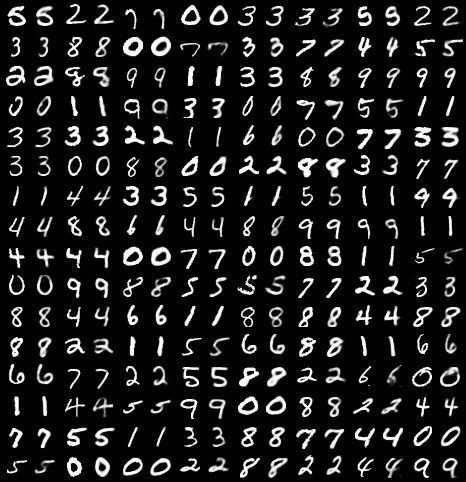 5 5 2 2 7 7 0 0 3 3 3 3 5 5 2 2
3 3 8 8 0 0 7 7 3 3 7 7 4 4 5 5
2 2 8 8 9 9 1 1 3 3 8 8 9 9 9 9
0 0 1 1 9 9 3 3 0 0 9 9 5 5 1 1
3 3 3 3 2 2 1 1 6 6 0 0 7 7 3 3
3 3 0 0 8 8 0 0 2 2 8 8 3 3 7 7
1 1 4 4 3 3 5 5 1 1 5 5 1 1 9 9
4 4 8 8 6 6 4 4 8 8 9 9 9 9 1 1
4 4 4 4 0 0 7 7 0 0 8 8 1 1 5 5
0 0 9 9 8 8 5 5 5 5 7 7 2 2 3 3
8 8 4 4 6 6 1 1 8 8 8 8 4 4 8 8
8 8 2 2 1 1 5 5 6 6 8 8 1 1 6 6
6 6 7 7 2 2 5 5 8 8 2 2 6 6 0 0
1 1 4 4 5 5 9 9 0 0 8 8 2 2 4 4
7 7 5 5 1 1 3 3 8 8 7 7 4 4 0 0
5 5 0 0 0 0 2 2 8 8 2 2 4 4 9 9